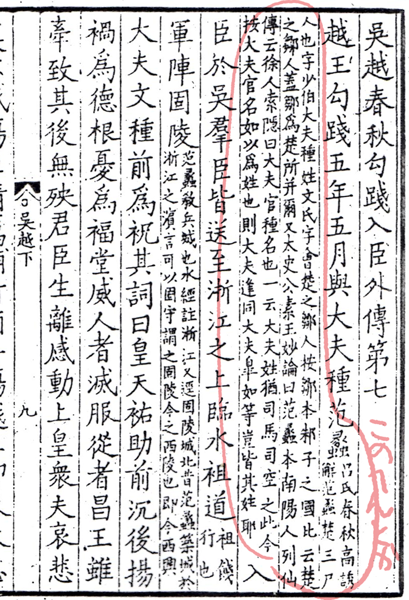 吳越春秋勾踐入臣外傳第七
越王勾踐五年五月與大夫種范蠡呂氏春秋高誘
解范蠡楚三尸
人也字少伯大夫種姓文氏字會楚之鄒人按鄒本邾子之國比云楚
之鄒人蓋鄒為楚所并爾又太史公素王妙論曰范蠡本南陽人列仙
傳云徐人索隱曰大夫官種名也一云大夫姓猶司馬司空之比今
按大夫官名如以為姓也則大夫逢同大夫皐如等豈皆其姓耶入
臣於吳羣臣皆送至浙江之上臨水祖道祖餞
行也
軍陣固陵范蠡敎兵城也水經註浙江又逕固陵城北昔范蠡築城於
浙江之濱言可以固守謂之固陵今之西陵也即今西興
大夫文種前為祝其詞曰皇天祐助前沉後揚
禍為德根憂為福堂威人者滅服從者昌王雖
牽致其後無殃君臣生離感動上皇衆夫哀悲
吳越下
九